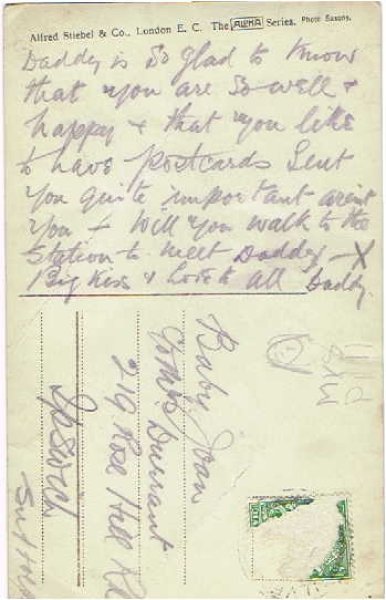 Alfred Stiebel & Co., London E. C. The ALPHA Series. Photo Saxony.
Daddy is so glad to know
that you are so well &
happy & that you like
to have postcards sent
you quite important arent
you & will you walk to the
station to meet Daddy – X
Big Kiss & love to all Daddy
Baby Joan
C/o Mrs Durrant
219 Rose Hill Rd
Ipswich
Suffolk